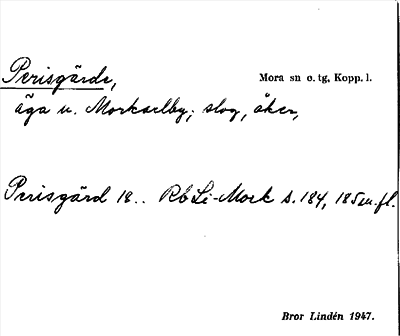 Perisgärde,
Mora sn o. tg, Kopp. l.
äga u. Morkarlby; slog, åker,
Perisgård 18.. Rb Li-Mork s. 184, 185 m.fl.
Bror Lindén 1947.